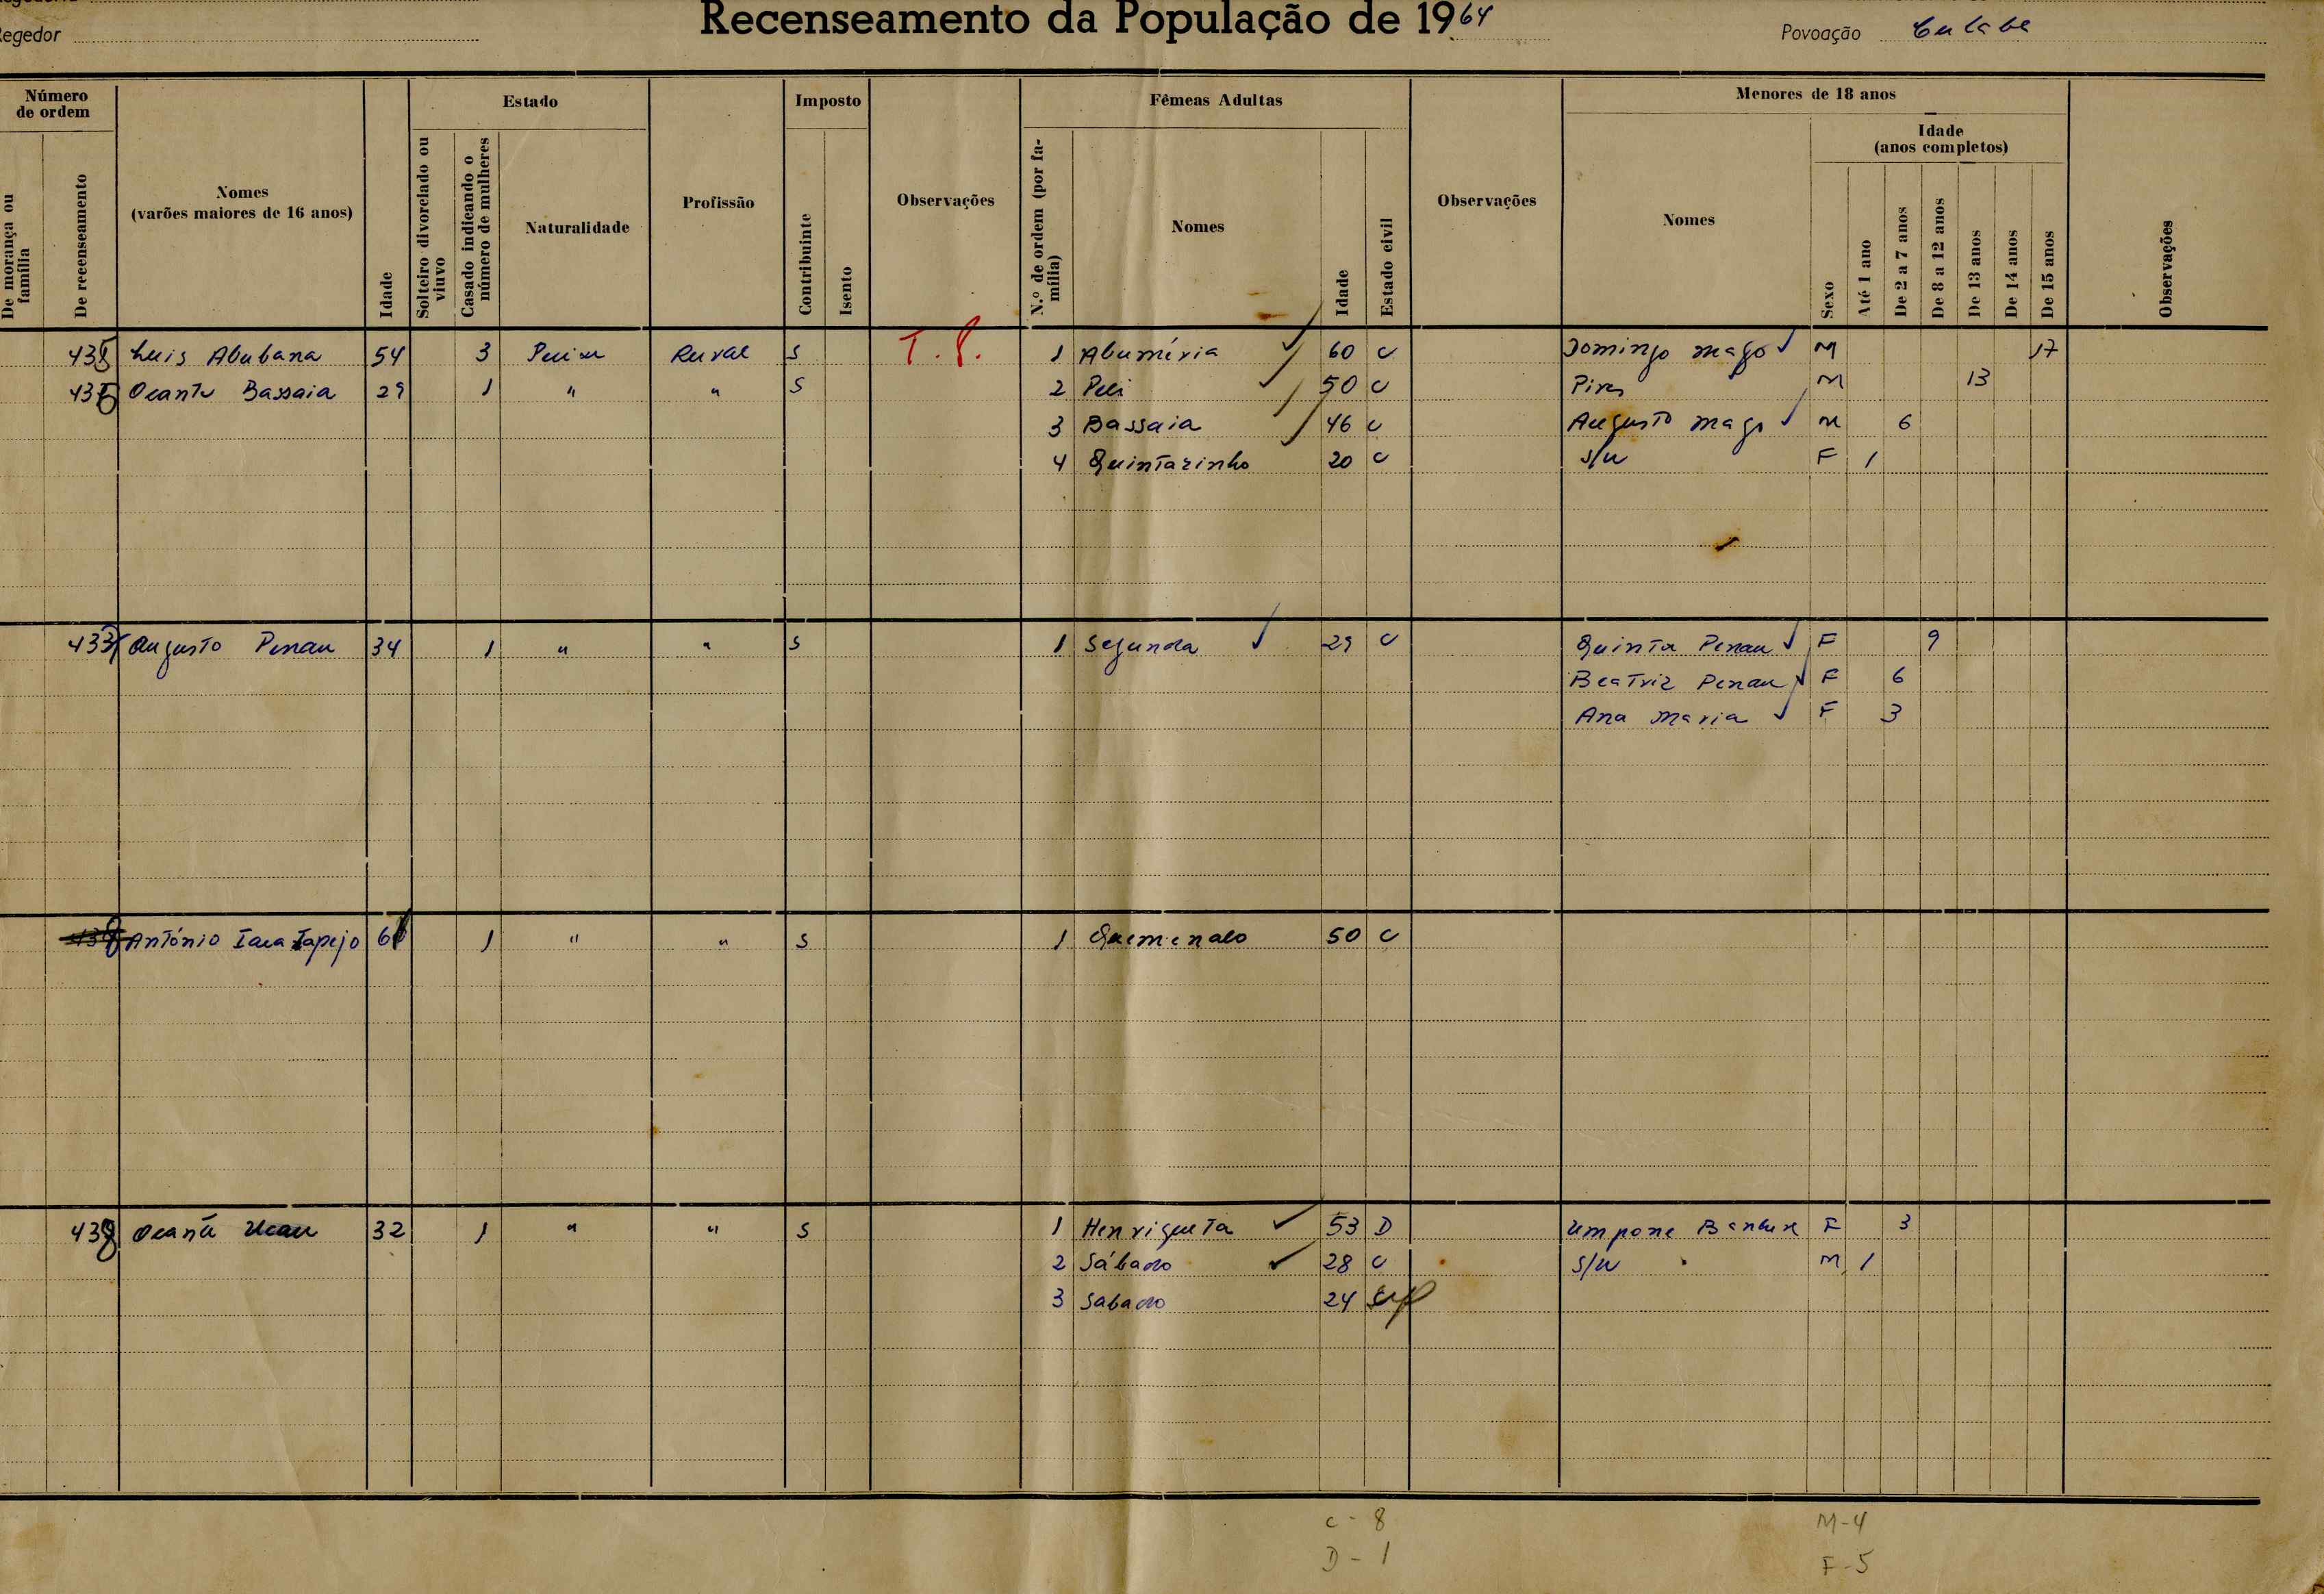 Recenseamento da População de 1964
Regedor
Povoação
Número de ordem
De morança ou família
De recenseamento
Nomes (varões maiores de 16 anos)
Idade
Estado
Solteiro divorciado ou viuvo
Casado indicando o número de mulheres
Naturalidade
Profissão
Imposto
Contribuinte
Isento
Observações
Fêmeas Adultas
N.º de ordem (por família)
Nomes
Idade
Estado civil
Observações
Menores de 18 anos
Nomes
Idade (anos completos)
Sexo
Até 1 ano
De 2 a 7 anos
De 8 a 12 anos
De 13 anos
De 14 anos
De 15 anos
Observações
Luis Abubana 54 3 Rural S T. P. 1 Abuméria 60 C Domingo Mago M 17
Bassaia 29 1 " " S 2 Peli 50 C Pires M 13
3 Bassaia 46 C Augusto Mago M 6
4 Quintazinho 20 C s/n F 1
Augusto Penau 34 1 " " S 1 Segunda 29 C Quinta Penau F 9
Beatriz Penau F 6
Ana Maria F 3
António 1 " " S 1 50 C
32 1 " " S 1 Henriqueta 53 D F 3
2 Sábado 28 C s/n M 1
3 Sabado 24
C - 8 M - 4
D - 1 F - 5